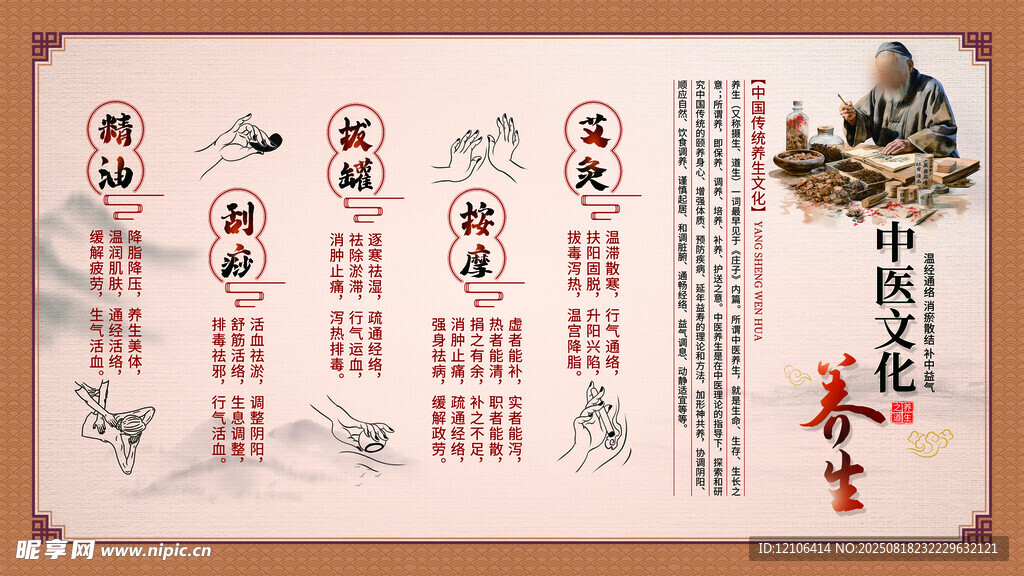 中医文化
养生
养生之道
温经通络 消瘀散结 补中益气
【中国传统养生文化】
YANG SHENG WEN HUA
养生（又称摄生、道生）一词最早见于《庄子》内篇。所谓中医养生，就是生命、生存、生长之
意；所谓养，即保养、调养、培养、补养、护送之意。中医养生是在中医理论的指导下，探索和研
究中国传统的颐养身心、增强体质、预防疾病、延年益寿的理论和方法，加形神共养，协调阴阳、
顺应自然、饮食调养、谨慎起居、和调脏腑、通畅经络、益气调息、动静适宜等等。
艾灸
温滞散寒，行气通络，
扶阳固脱，升阳兴陷，
拔毒泻热，温宫降脂。
按摩
虚者能补，实者能泻，
热者能清，职者能散，
捐之有余，补之不足，
消肿止痛，疏通经络，
强身祛病，缓解政劳。
拔罐
逐寒祛湿，疏通经络，
祛除淤滞，行气运血，
消肿止痛，泻热排毒。
刮痧
活血祛淤，调整阴阳，
舒筋活络，生息调整，
排毒祛邪，行气活血。
精油
降脂降压，养生美体，
温润肌肤，通经活络，
缓解疲劳，生气活血。
昵享网 www.nipic.cn
ID:12106414 NO:20250818232229632121